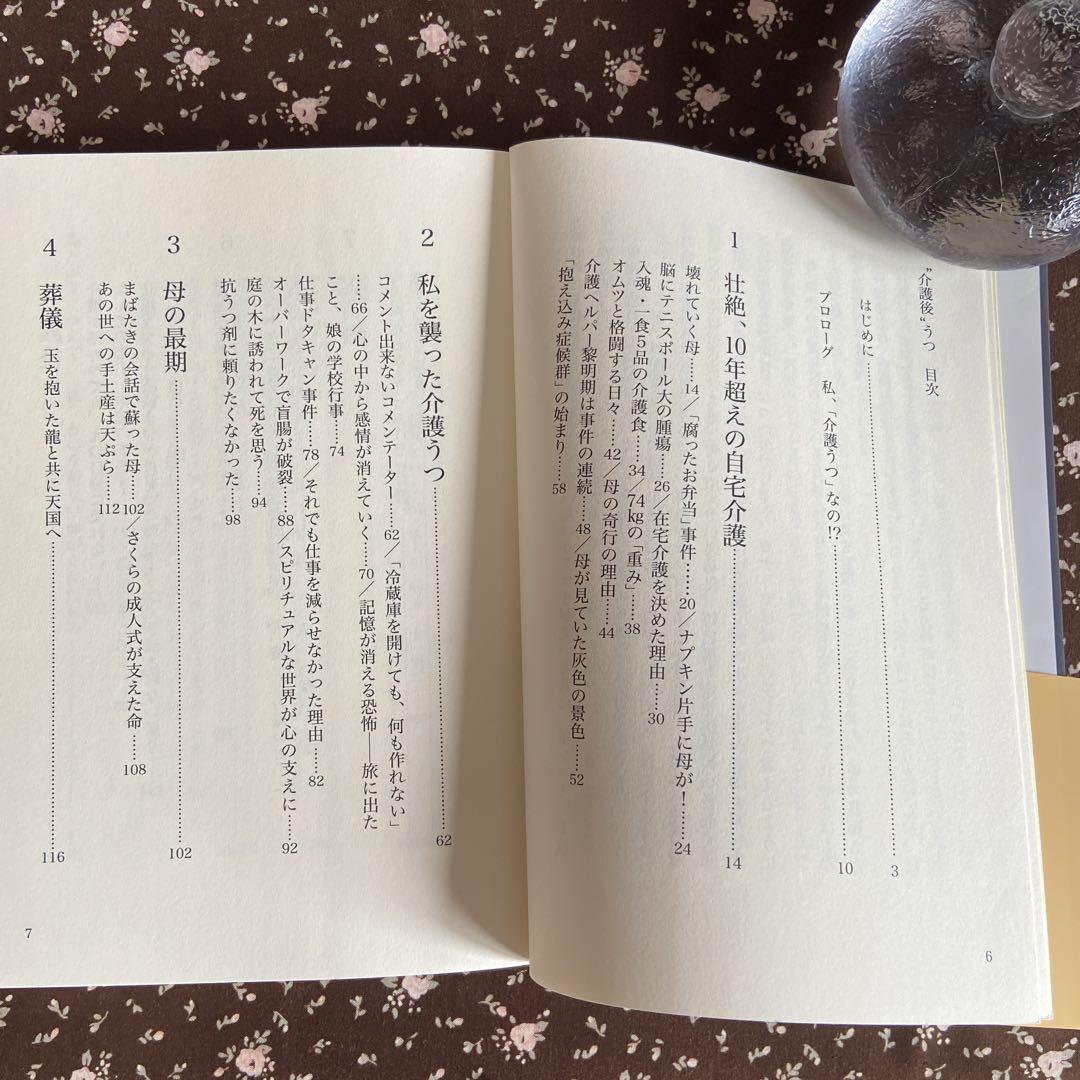 〝介護後〟うつ　目次
はじめに……3
プロローグ　私、「介護うつ」なの!?……10
1　壮絶、10年超えの自宅介護……14
壊れていく母……14／「腐ったお弁当」事件……20／ナプキン片手に母が！……24
脳にテニスボール大の腫瘍……26／在宅介護を決めた理由……30
入魂・一食5品の介護食……34／74kgの「重み」……38
オムツと格闘する日々……42／母の奇行の理由……44
介護ヘルパー黎明期は事件の連続……48／母が見ていた灰色の景色……52
「抱え込み症候群」の始まり……58
6
2　私を襲った介護うつ……62
コメント出来ないコメンテーター……62／「冷蔵庫を開けても、何も作れない」
……66／心の中から感情が消えていく……70／記憶が消える恐怖――旅に出た
こと、娘の学校行事……74
仕事ドタキャン事件……78／それでも仕事を減らせなかった理由……82
オーバーワークで盲腸が破裂……88／スピリチュアルな世界が心の支えに……92
庭の木に誘われて死を思う……94
抗うつ剤に頼りたくなかった……98
3　母の最期……102
まばたきの会話で蘇った母……102／さくらの成人式が支えた命……108
あの世への手土産は天ぷら……112
4　葬儀　玉を抱いた龍と共に天国へ……116
7